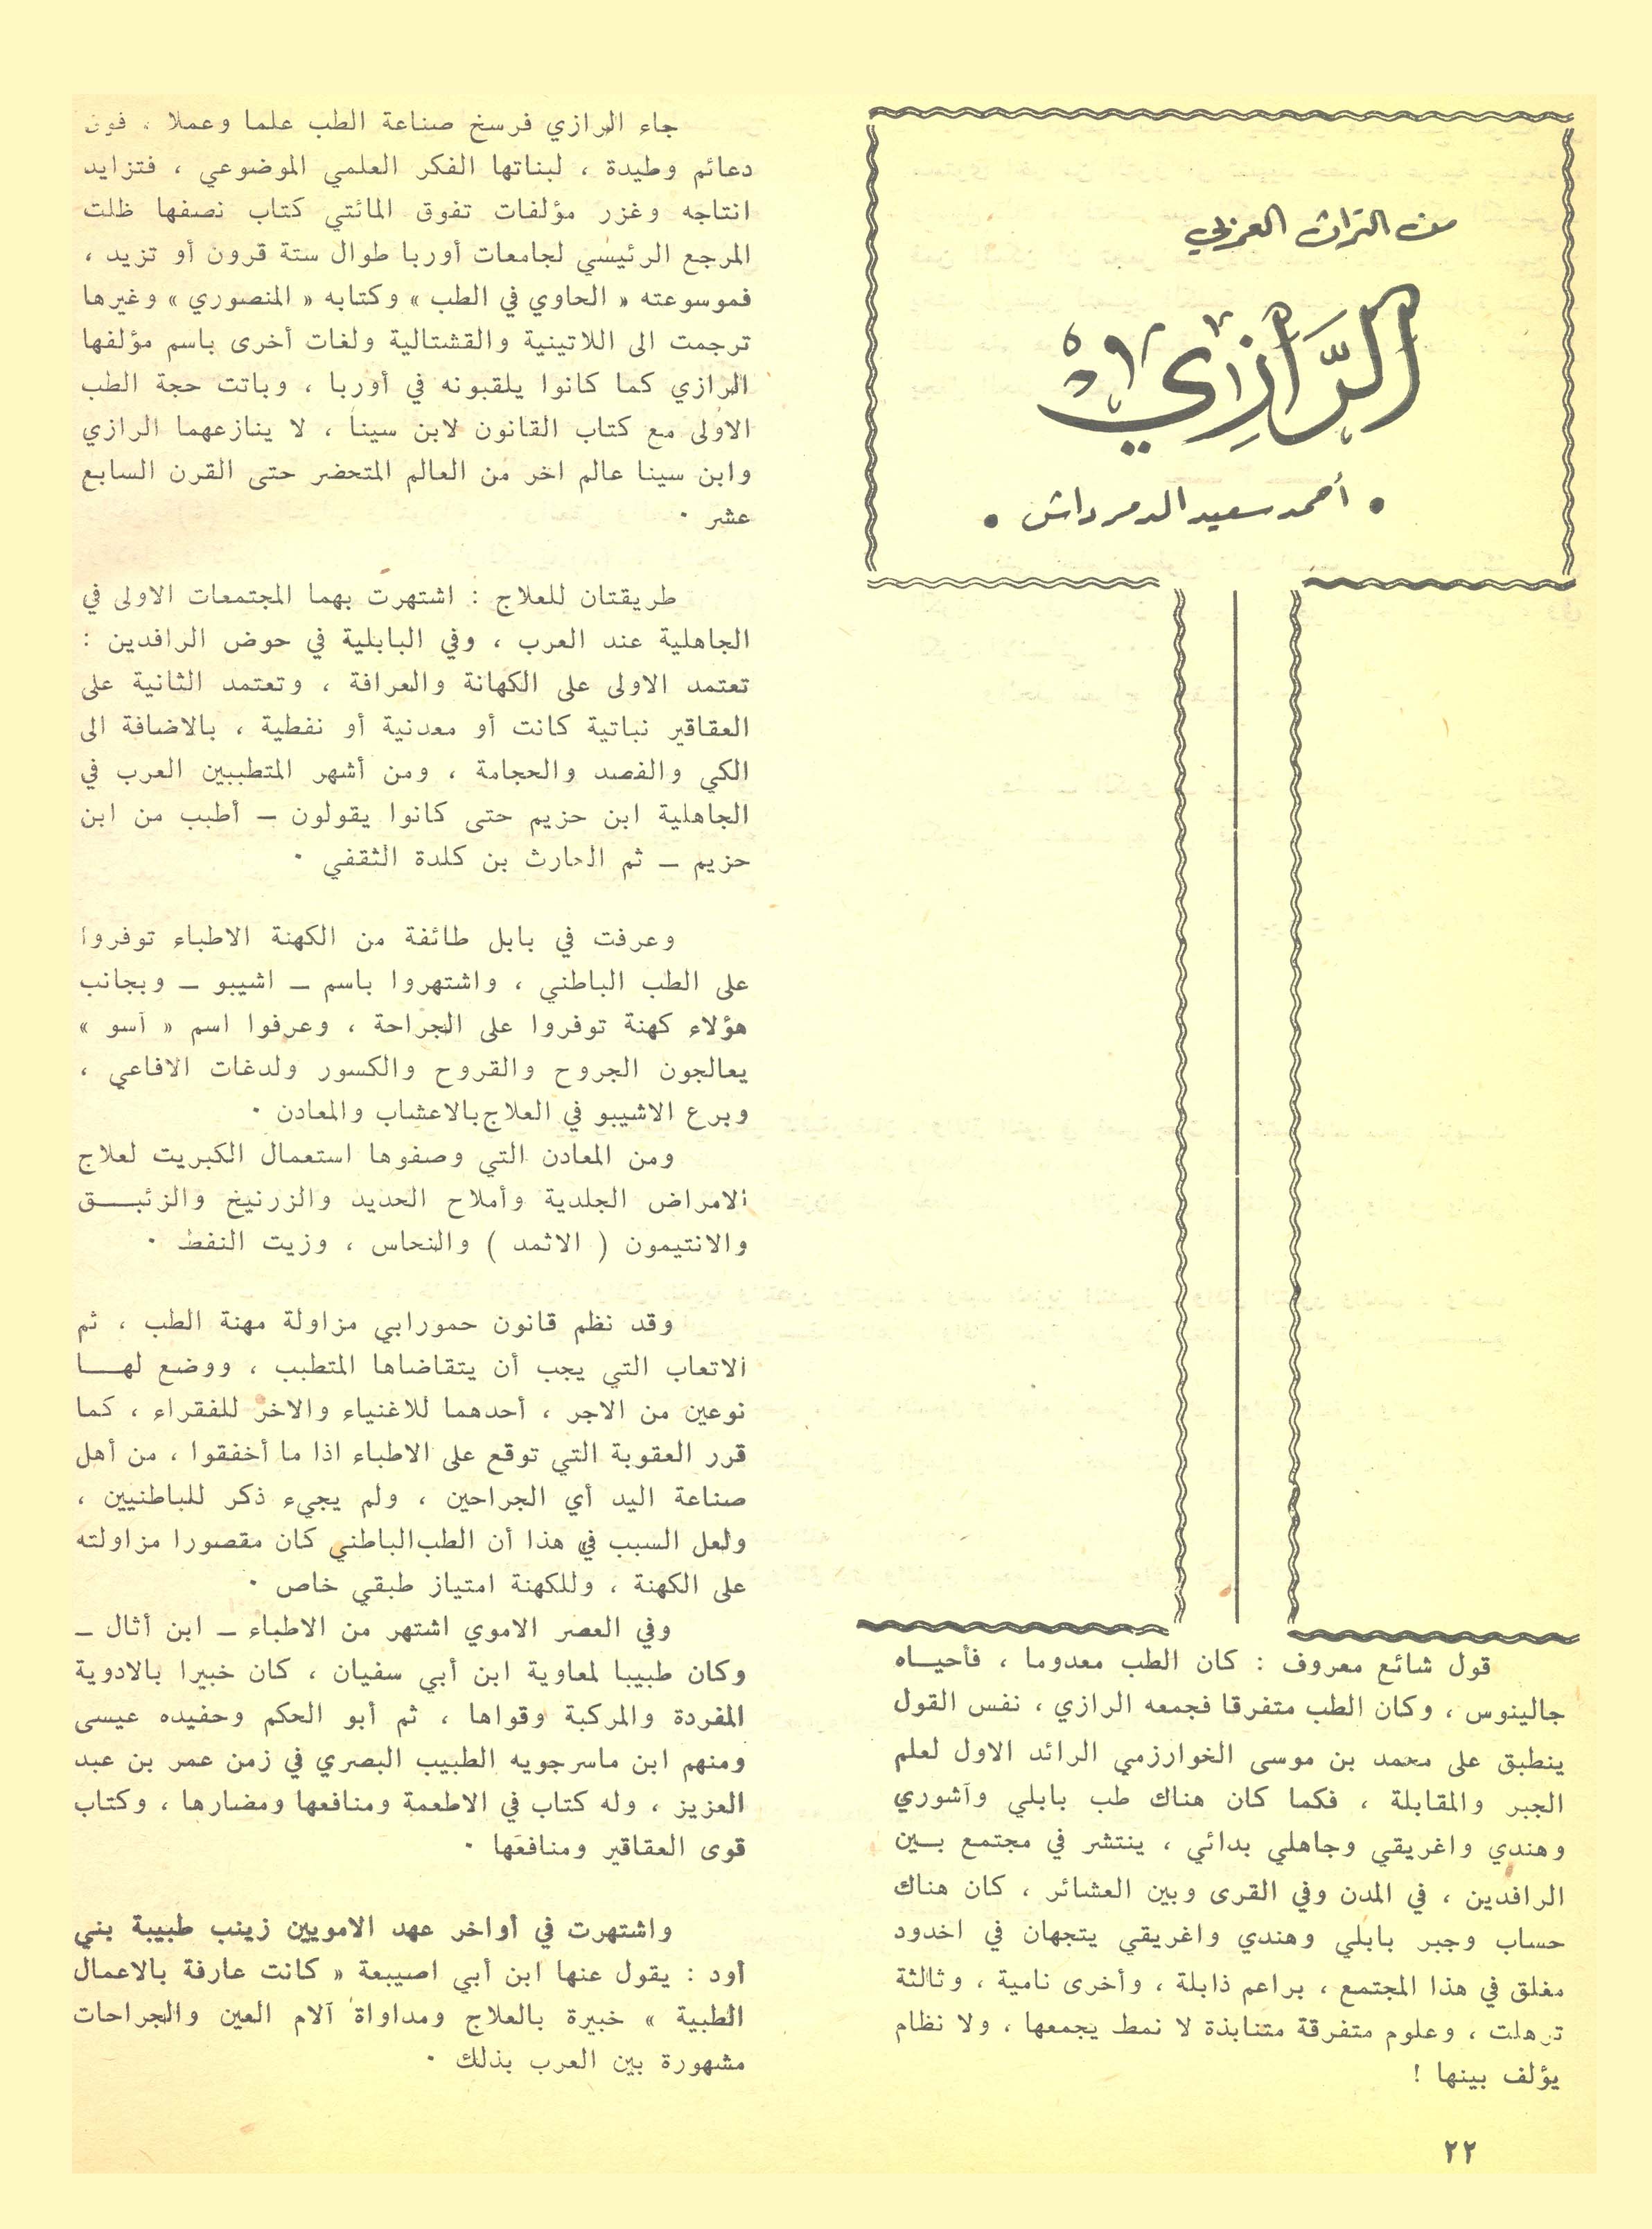 من التراث العربي
الرازي
• أحمد سعيد الدمرداش •
قول شائع معروف : كان الطب معدوما ، فأحيـاه
جالينوس ، وكان الطب متفرقا فجمعه الرازي ، نفس القول
ينطبق على محمد بن موسى الخوارزمي الرائد الاول لعلم
الجبر والمقابلة ، فكما كان هناك طب بابلي وآشوري
وهندي واغريقي وجاهلي بدائي ، ينتشر في مجتمع بـين
الرافدين ، في المدن وفي القرى وبين العشائر ، كان هناك
حساب وجبر بابلي وهندي واغريقي يتجهان في اخدود
مغلق في هذا المجتمع ، براعم ذابلة ، وأخرى نامية ، وثالثة
ترهلت ، وعلوم متفرقة متنابذة لا نمط يجمعها ، ولا نظام
يؤلف بينها !
جاء الرازي فرسخ صناعة الطب علما وعملا ، فوق
دعائم وطيدة ، لبناتها الفكر العلمي الموضوعي ، فتزايد
انتاجه وغزر مؤلفات تفوق المائتي كتاب نصفها ظلت
المرجع الرئيسي لجامعات أوربا طوال ستة قرون أو تزيد ،
فموسوعته « الحاوي في الطب » وكتابه « المنصوري » وغيرها
ترجمت الى اللاتينية والقشتالية ولغات أخرى باسم مؤلفها
الرازي كما كانوا يلقبونه في أوربا ، وباتت حجة الطب
الاولى مع كتاب القانون لابن سينا ، لا ينازعهما الرازي
وابن سينا عالم اخر من العالم المتحضر حتى القرن السابع
عشر ٠
طريقتان للعلاج : اشتهرت بهما المجتمعات الاولى في
الجاهلية عند العرب ، وفي البابلية في حوض الرافدين :
تعتمد الاولى على الكهانة والعرافة ، وتعتمد الثانية على
العقاقير نباتية كانت أو معدنية أو نفطية ، بالاضافة الى
الكي والفصد والحجامة ، ومن أشهر المتطببين العرب في
الجاهلية ابن حزيم حتى كانوا يقولون ـ أطبب من ابن
حزيم ـ ثم الحارث بن كلدة الثقفي ٠
وعرفت في بابل طائفة من الكهنة الاطباء توفروا
على الطب الباطني ، واشتهروا باسم ـ اشيبو ـ وبجانب
هؤلاء كهنة توفروا على الجراحة ، وعرفوا اسم « آسو »
يعالجون الجروح والقروح والكسور ولدغات الافاعي ،
وبرع الاشيبو في العلاج بالاعشاب والمعادن ٠
ومن المعادن التي وصفوها استعمال الكبريت لعلاج
الامراض الجلدية وأملاح الحديد والزرنيخ والزئبـــق
والانتيمون ( الاثمد ) والنحاس ، وزيت النفط ٠
وقد نظم قانون حمورابي مزاولة مهنة الطب ، ثم
الاتعاب التي يجب أن يتقاضاها المتطبب ، ووضع لهـــا
نوعين من الاجر ، أحدهما للاغنياء والاخر للفقراء ، كما
قرر العقوبة التي توقع على الاطباء اذا ما أخفقوا ، من أهل
صناعة اليد أي الجراحين ، ولم يجيء ذكر للباطنيين ،
ولعل السبب في هذا أن الطب الباطني كان مقصورا مزاولته
على الكهنة ، وللكهنة امتياز طبقي خاص ٠
وفي العصر الاموي اشتهر من الاطباء ـ ابن أثال ـ
وكان طبيبا لمعاوية ابن أبي سفيان ، كان خبيرا بالادوية
المفردة والمركبة وقواها ، ثم أبو الحكم وحفيده عيسى
ومنهم ابن ماسرجويه الطبيب البصري في زمن عمر بن عبد
العزيز ، وله كتاب في الاطعمة ومنافعها ومضارها ، وكتاب
قوى العقاقير ومنافعها ٠
واشتهرت في أواخر عهد الامويين زينب طبيبة بني
أود : يقول عنها ابن أبي اصيبعة « كانت عارفة بالاعمال
الطبية » خبيرة بالعلاج ومداواة آلام العين والجراحات
مشهورة بين العرب بذلك ٠
٢٢